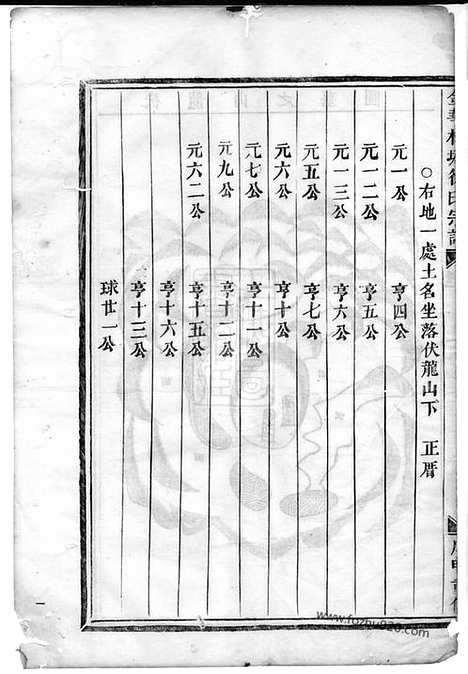 ○右地一處土名坐落伏龍山下　正厝
元一公　亨四公
元一二公　亨五公
元一三公　亨六公
元五公　亨七公
元六公　亨十公
元七公　亨十一公
元九公　亨十二公
元六二公　亨十五公
亨十六公
亨十三公
球廿一公
www.fozhu920.com